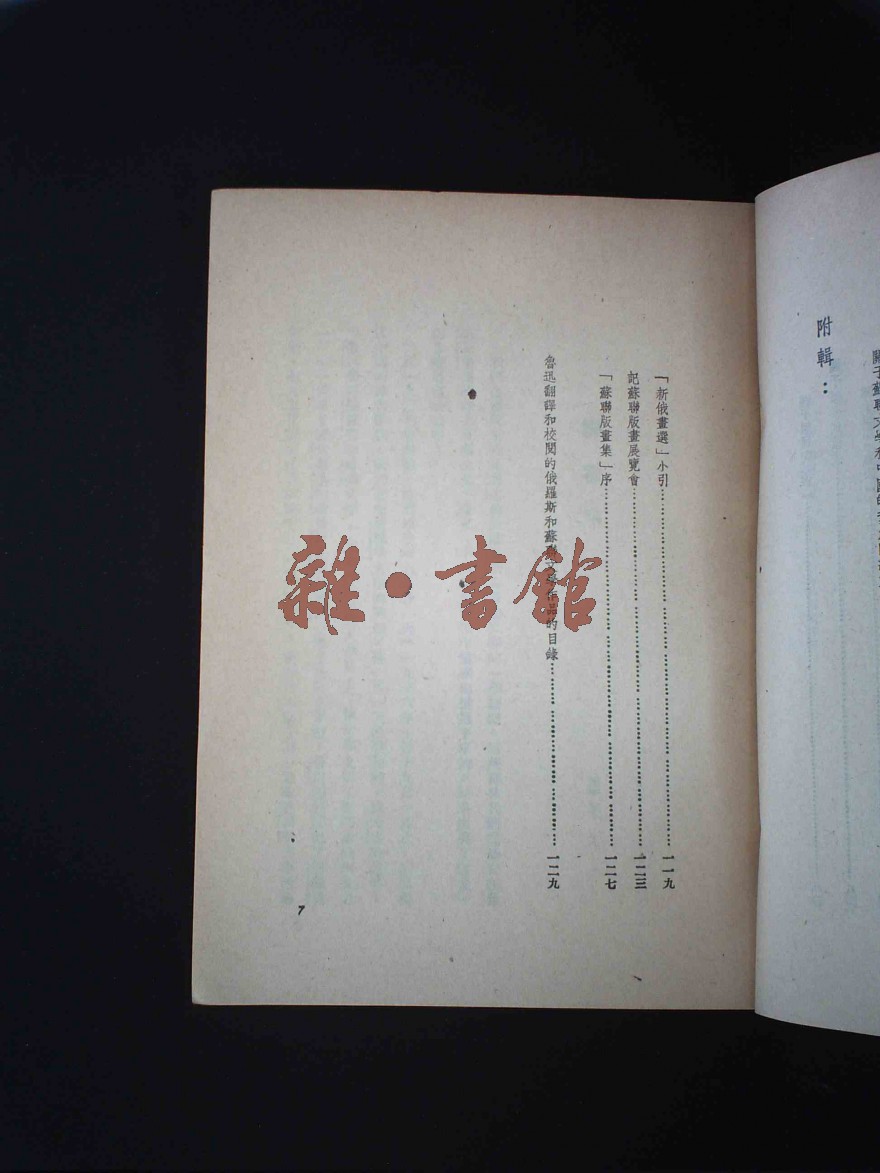 附輯：
「新俄畫選」小引……一一九
記蘇聯版畫展覽會……一二三
「蘇聯版畫集」序……一二七
魯迅翻譯和校閱的俄羅斯和蘇聯文學作品的目錄……一二九
7
雜·書館